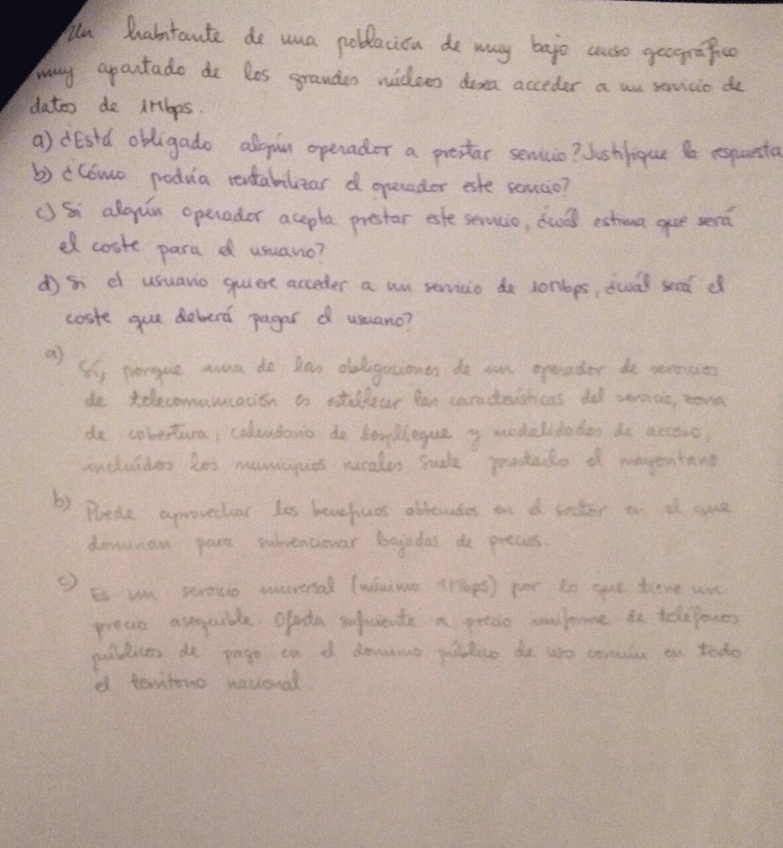 Un habitante de una población de muy bajo censo geográfico
muy apartado de los grandes núcleos desea acceder a un servicio de
datos de 1Mbps.
a) ¿Está obligado algún operador a prestar servicio? Justifique la respuesta
b) ¿Cómo podría rentabilizar el operador este servicio?
c) Si algún operador acepta prestar este servicio, ¿cuál estima que será
el coste para el usuario?
d) Si el usuario quiere acceder a un servicio de 10Mbps, ¿cuál será el
coste que deberá pagar el usuario?
a) Sí, porque una de las obligaciones de un operador de servicios
de telecomunicación es establecer las características del servicio, zona
de cobertura, calendario de despliegue y modalidades de acceso,
incluidos los municipios rurales. Suele prestarlo el mayoritario
b) Puede aprovechar los beneficios obtenidos en el sector en el que
dominan para subvencionar bajadas de precios.
c) Es un servicio universal (mínimo 1Mbps) por lo que tiene un
precio asequible. Oferta suficiente a precio uniforme de teléfonos
públicos de pago en el dominio público de uso común en todo
el territorio nacional